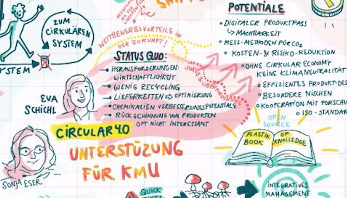 ZUM
CIRCULÄREN
SYSTEM
SYSTEM
WETTBEWERBSVORTEILE IN
DER ZUKUNFT!
STATUS QUO:
• HERAUSFORDERUNGEN:
WIRTSCHAFTLICHKEIT
• WENIG RECYCLING
• LIEFERKETTEN OPTIMIERUNG
• CHEMIKALIEN VERBESSERUNGSPOTENTIALE
• RÜCKGEWINNUNG VON PRODUKTEN
OFT NICHT INTERESSANT
EVA
SCHICHL
SONJA ESER
CIRCULAR 4.0
UNTERSTÜZUNG
FÜR KMU
POTENTIALE
• DIGITALER PRODUKTPASS
↳ MACHBARKEIT
• MESS-METHODEN FÜR CO2
KOSTEN- & RISIKO-REDUKTION
• OHNE CIRCULAR ECONOMY
KEINE KLIMANEUTRALITÄT
• EFFIZIENTES PRODUKTDES
• BESONDERE NISCHEN
• KOOPERATION MIT FORSCHU
• ISO-STANDAR
OPEN
SOURCE
PLASTIK
BOOK
OF
KNOWLEDGE
QUICK
INTEGRATIVES
MANAGEMENT